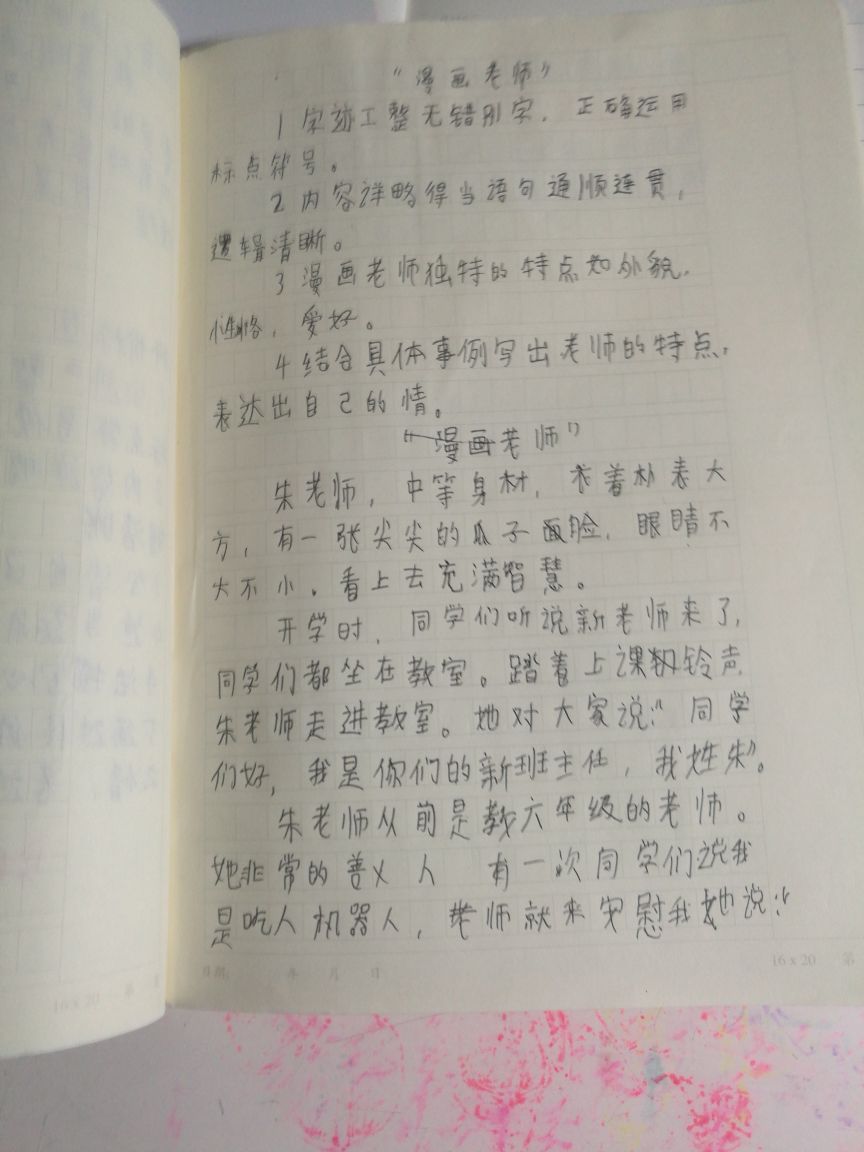 “漫画老师”
1字迹工整无错别字，正确运用
标点符号。
2内容详略得当语句通顺连贯，
逻辑清晰。
3漫画老师独特的特点如外貌，
性格，爱好。
4结合具体事例写出老师的特点，
表达出自己的情。
“漫画老师”
朱老师，中等身材，衣着朴表大
方，有一张尖尖的瓜子脸，眼睛不
大不小。看上去充满智慧。
开学时，同学们听说新老师来了，
同学们都坐在教室。踏着上课铃声
朱老师走进教室。她对大家说：“同学
们好，我是你们的新班主任，我姓朱”。
朱老师从前是教六年级的老师。
她非常的善 人 有一次同学们说我
是吃人机器人，老师就来安慰我她说：“
16x20 第
年 月 日
16x20 第